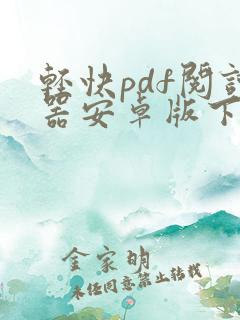 輕快pdf閱讀
器安卓版下
金家明
未经同意禁止转载